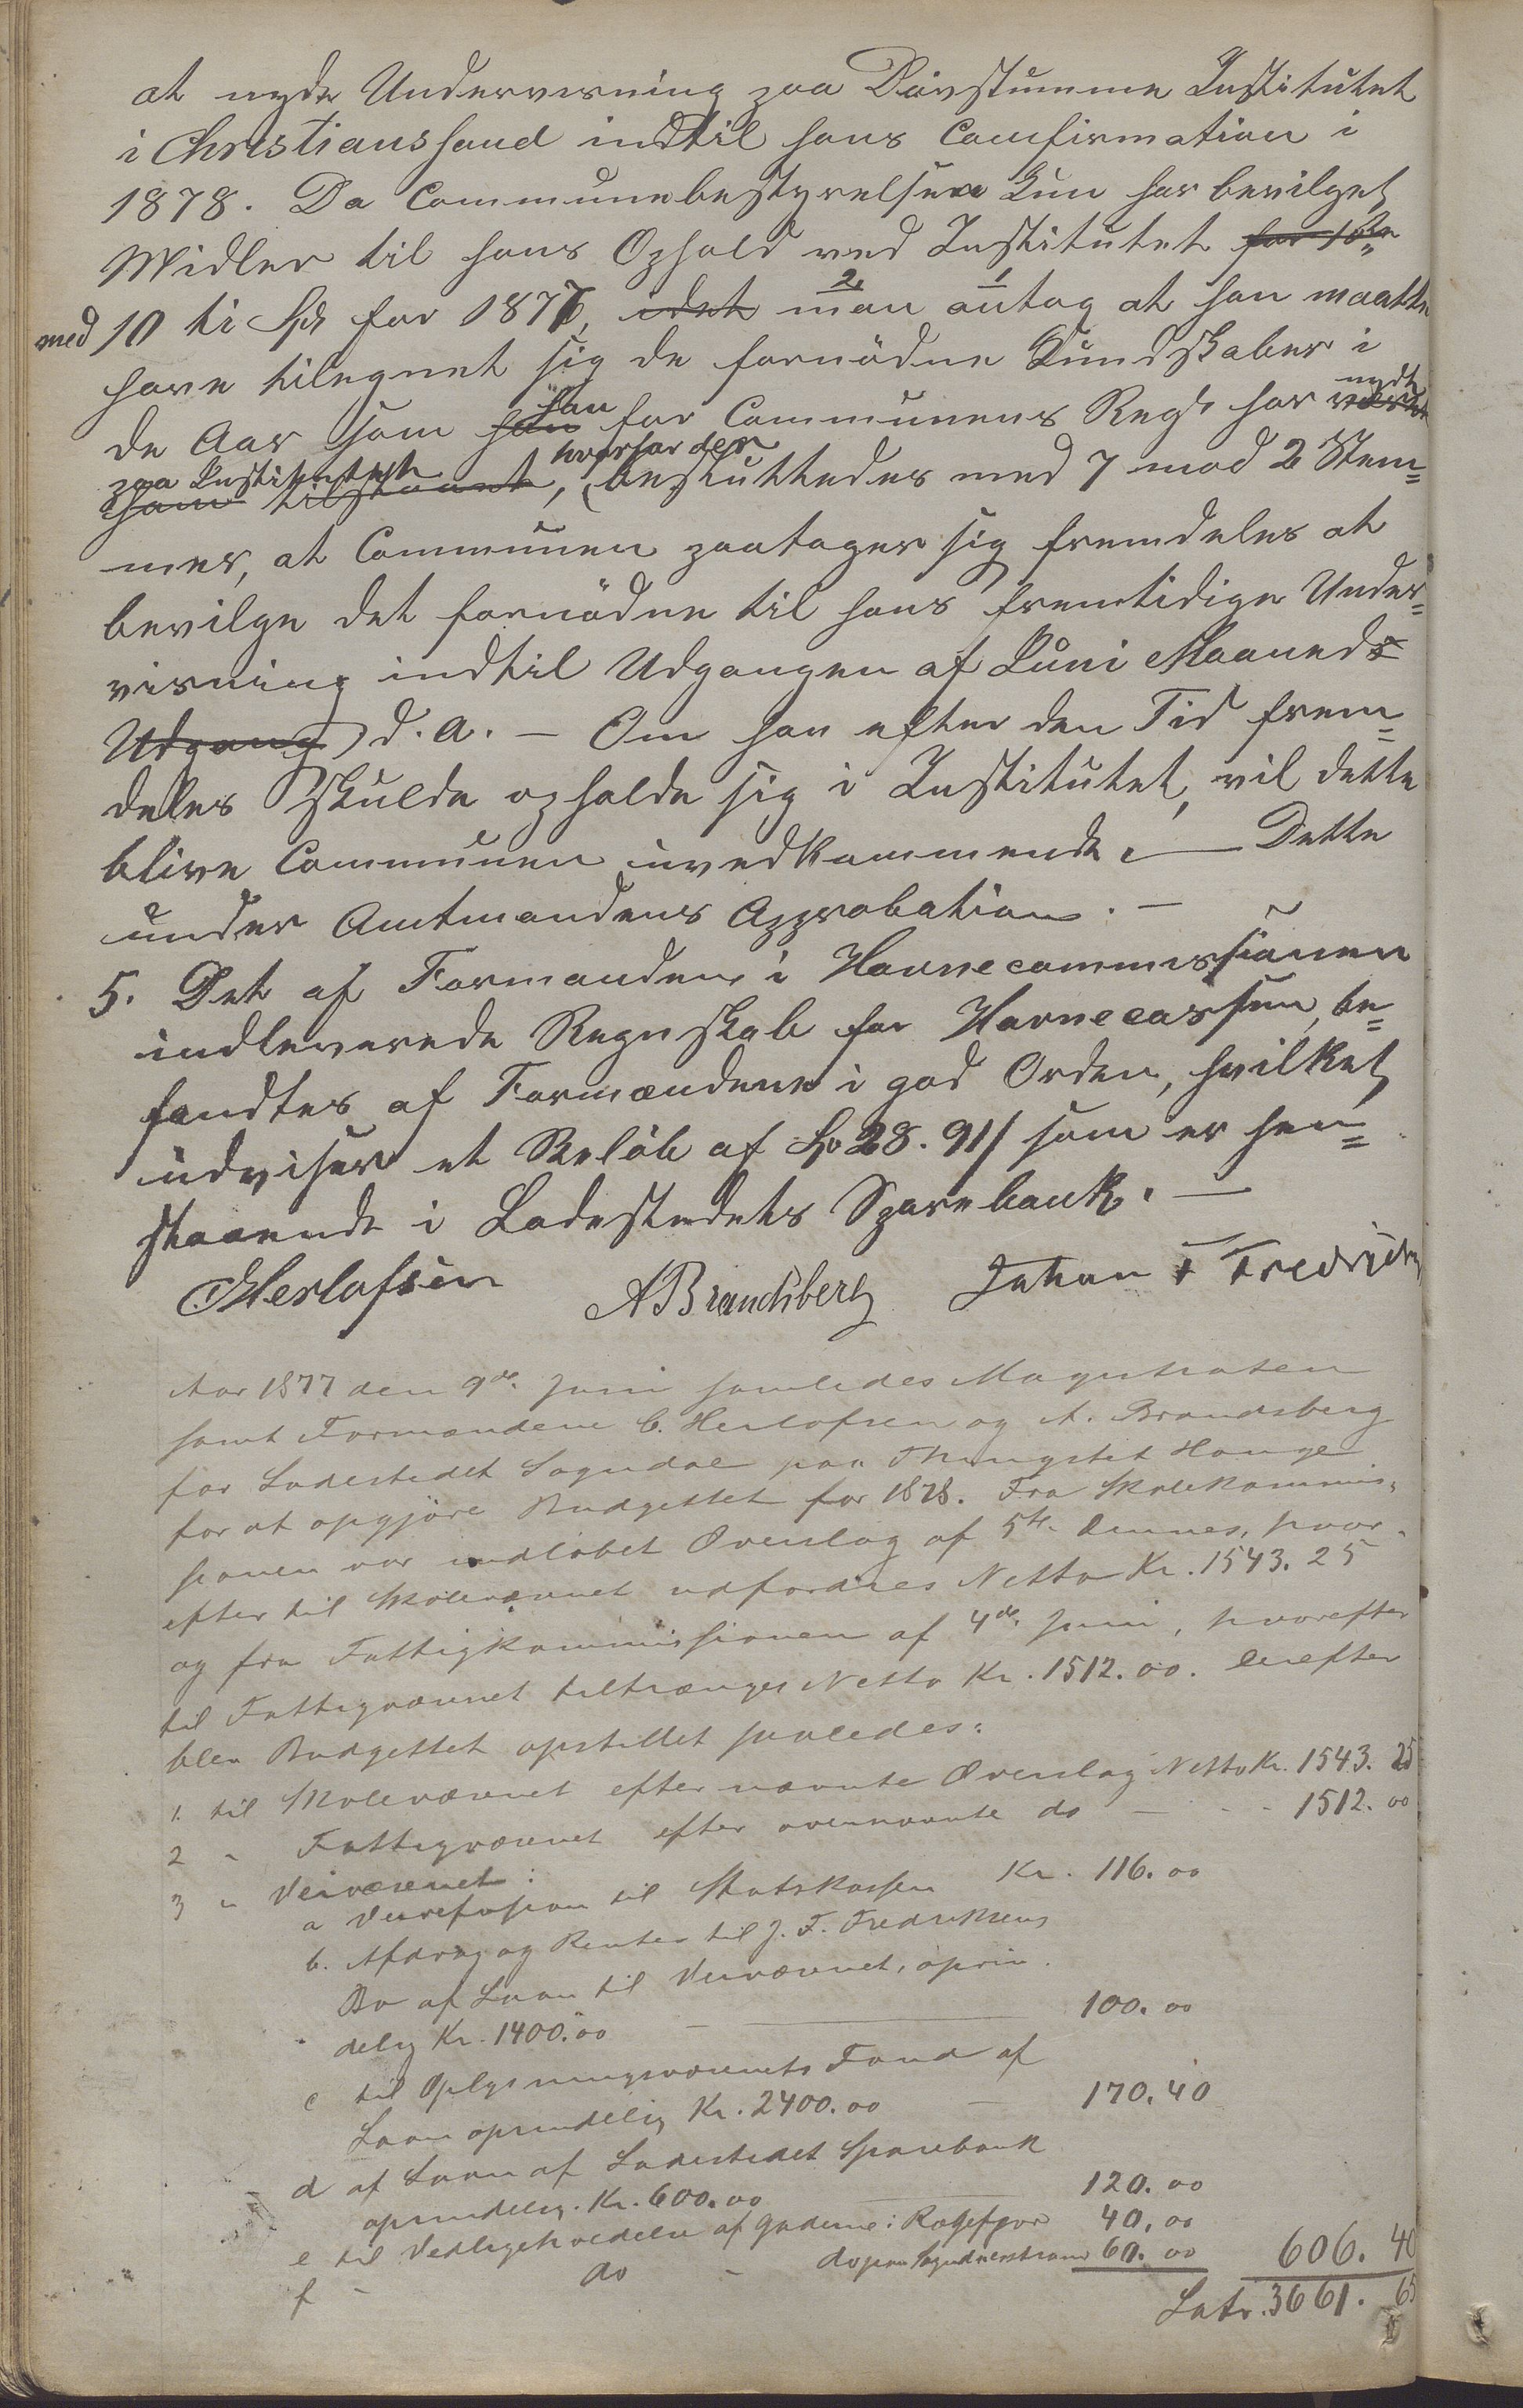 at nyde Undervisning paa Døvstumme Institutet
i Christianssand indtil hans Comfirmation i
1878. Da Communebestyrelsen kun har bevilget
Midler til hans Ophold ved Institutet for 1ste
med 10 ti Spd for 1877, idet man antog at han maatte
have tilegnet sig de fornödne Kundskaber i
de Aar som han for Communens Regn. har nydt
paa Institutet, hvorfor der besluttedes med 7 mod 2 Stem=
mer, at Communen paatager sig fremdeles at
bevilge det fornödne til hans fremtidige Under=
visning indtil Udgangen af Juni Maaned
Udgang d. A. — Om han efter den Tid frem=
deles skulde opholde sig i Institutet, vil dette
blive Communen uvedkommende. — Dette
under Amtmandens Approbation. —
5. Det af Formanden i Havnecommissionen
indleverede Regnskab for Havnecassen, be=
fandtes af Formændene i god Orden, hvilket
udviser et Beløb af Sp 28. 91/ som er hen=
staaende i Ladestedets Sparebank. —
C Herlofsen A Brandsberg Johan F Fredriks
Aar 1877 den 9de Juni samledes Magistraten
samt Formændene C. Herlofsen og A. Brandsberg
for Ladestedet Sogndal paa Thingstet Hauge
for at opgjöre Budgettet for 1878. Fra Skolekommis=
sionen var indløbet Overslag af 5te dennes, hvor=
efter til Skolevæsenet udfordres Netto Kr. 1543. 25
og fra Fattigkommissionen af 4de Juni, hvorefter
til Fattigvæsenet tiltrænges Netto Kr. 1512. 00. Derefter
blev Budgettet opstillet saaledes:
1. til Skolevæsenet efter nævnte Overslag Netto Kr. 1543. 25
2 " Fattigvæsenet efter ovennævnte do — " " 1512. 00
3 " Veivæsenet:
a Veirefusion til Statskassen Kr. 116. 00
b. Afdrag og Renter til J. F. Fredriksens
Bo af Laan til Veivæsenet, oprin=
delig Kr. 1400. 00 — 100. 00
c til Oplysningsvæsenets Fond af
Laan oprindelig Kr. 2400. 00 — 170. 40
d af Laan af Ladestedet Sparebank
oprindelig Kr. 600. 00 — 120. 00
e til Vedligeholdelse af Gaderne i Rægefjor 40. 00
f " do " do paa Sogndalsstrand 60. 00 606. 40
Latr. 3661. 65